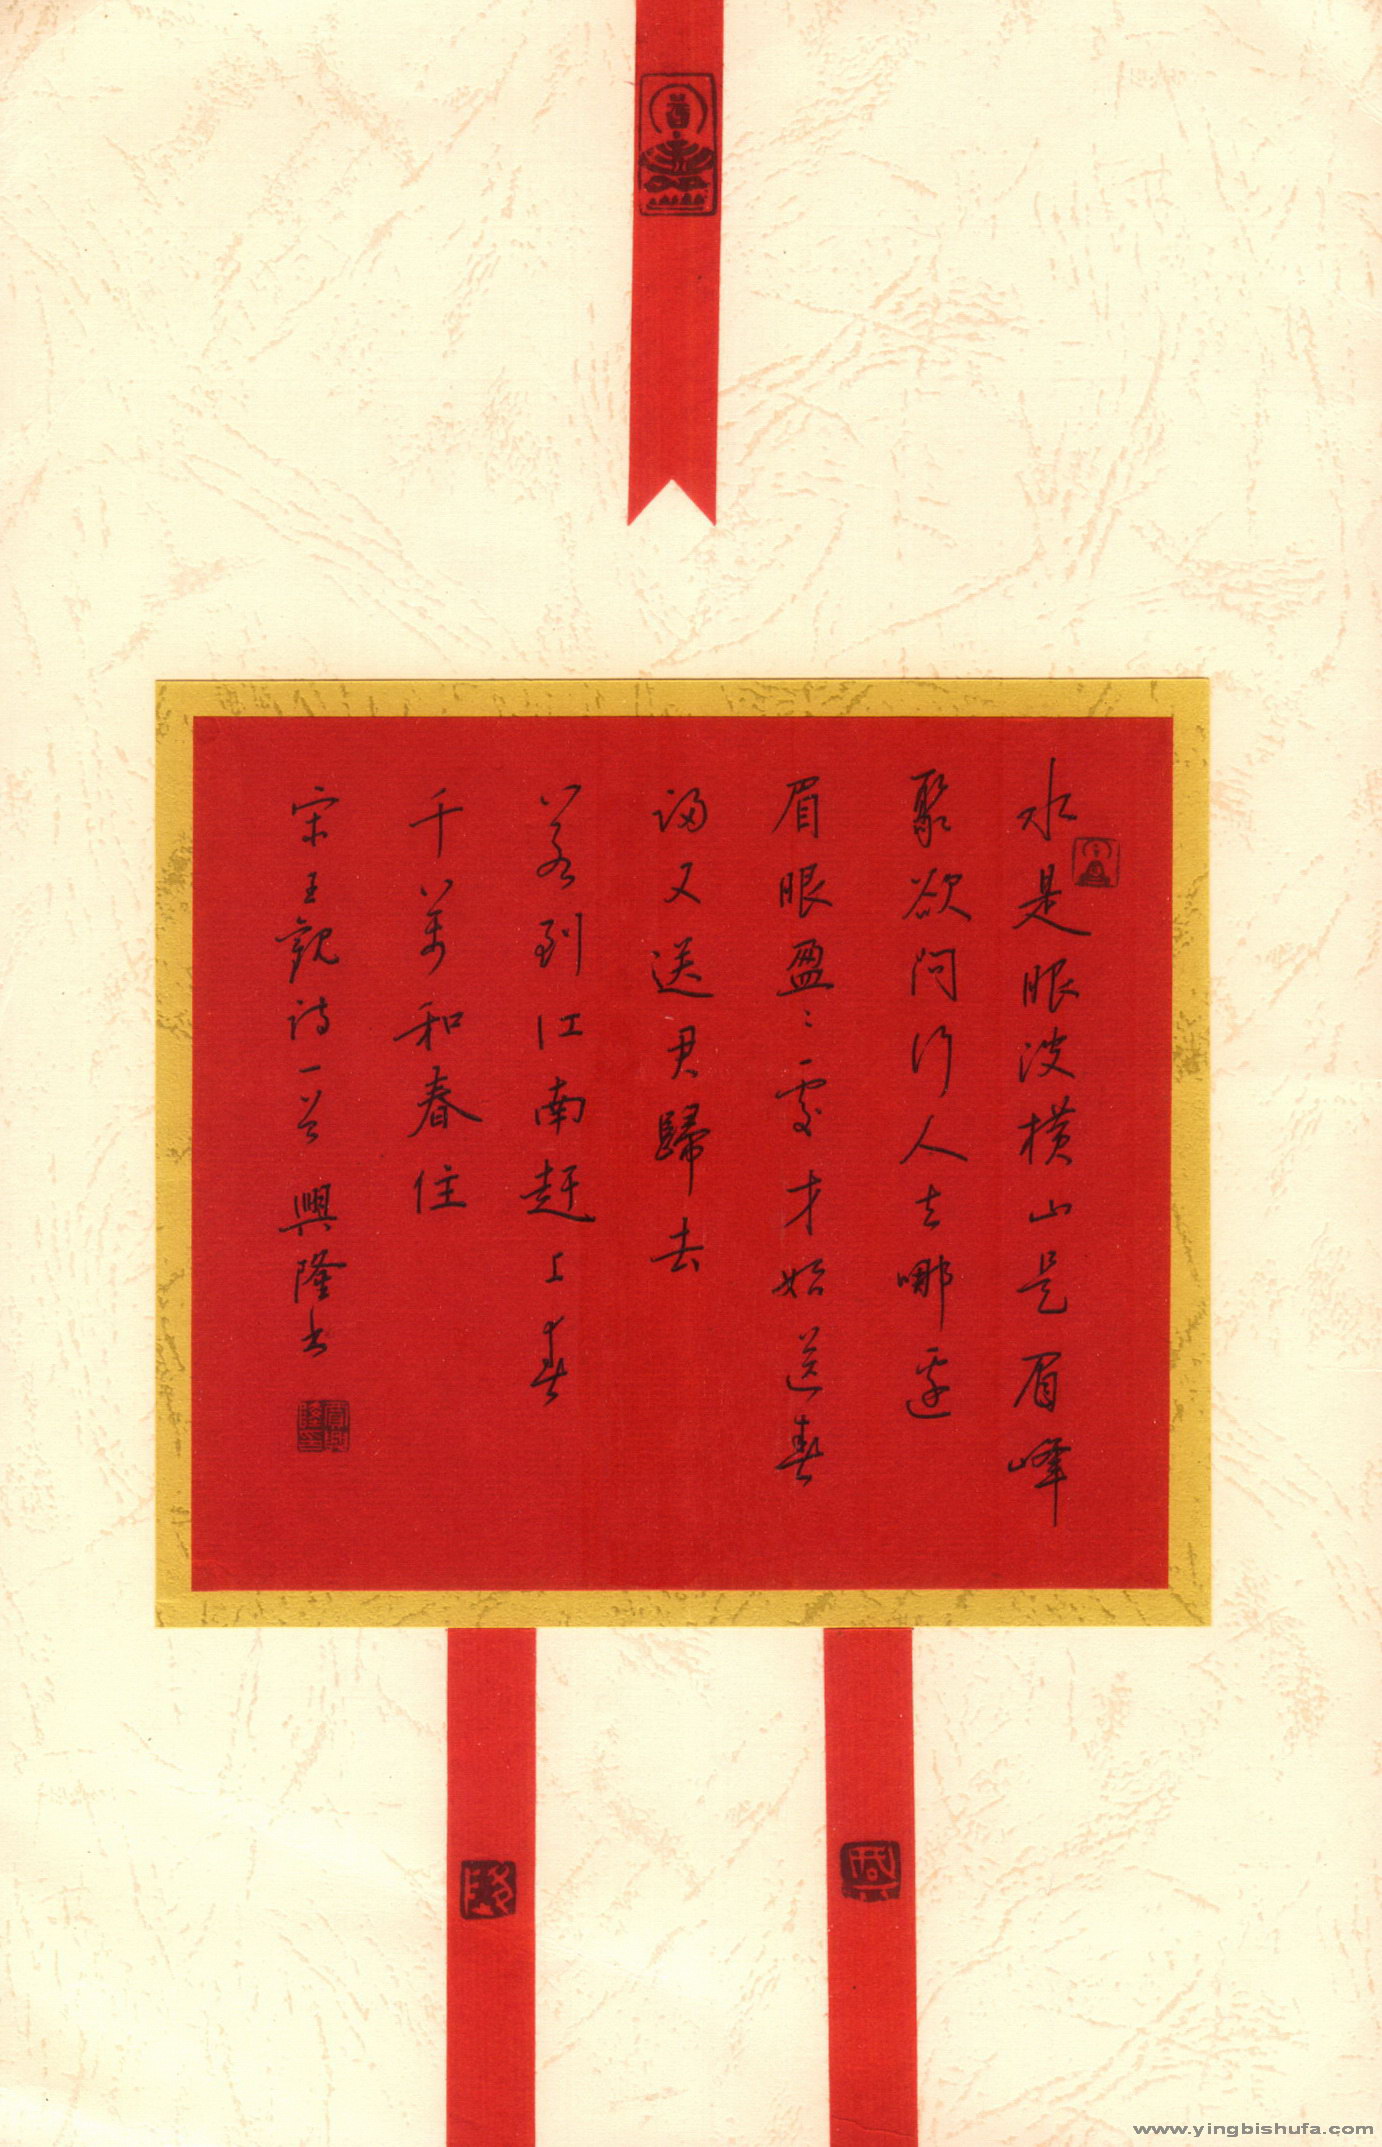 水是眼波横山是眉峰
聚欲问行人去哪边
眉眼盈々处才始送春
归又送君歸去
若到江南赶上春
千萬和春住
宋王觀诗一首 興隆书
www.yingbishufa.com